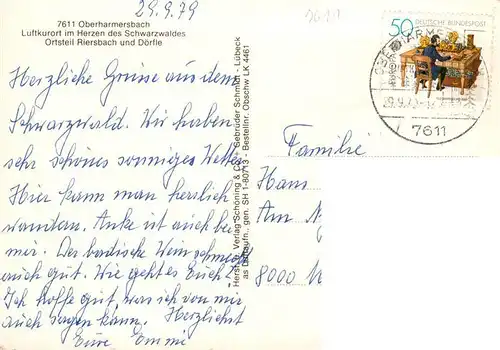 29.9.79
7611 Oberharmersbach
Luftkurort im Herzen des Schwarzwaldes
Ortsteil Riersbach und Dörfle
Herzliche Grüsse aus dem
Schwarzwald. Wir haben
sehr schönes sonniges Wetter
Hier kann man herrlich
wandern. Anke ist auch bei
mir. Der badische Wein schmeckt
auch gut. Wie geht es Euch?
Ich hoffe gut, was ich von mir
auch sagen kann. Herzlichst
Eure Emmi
Herst. u. Verlag Schöning & Co. + Gebrüder Schmidt, Lübeck
gen. SH 1-80713 - Bestellnr. Obschw LK 4461
50 DEUTSCHE BUNDESPOST
29.9.79
7611
Familie
Hans
Am
8000